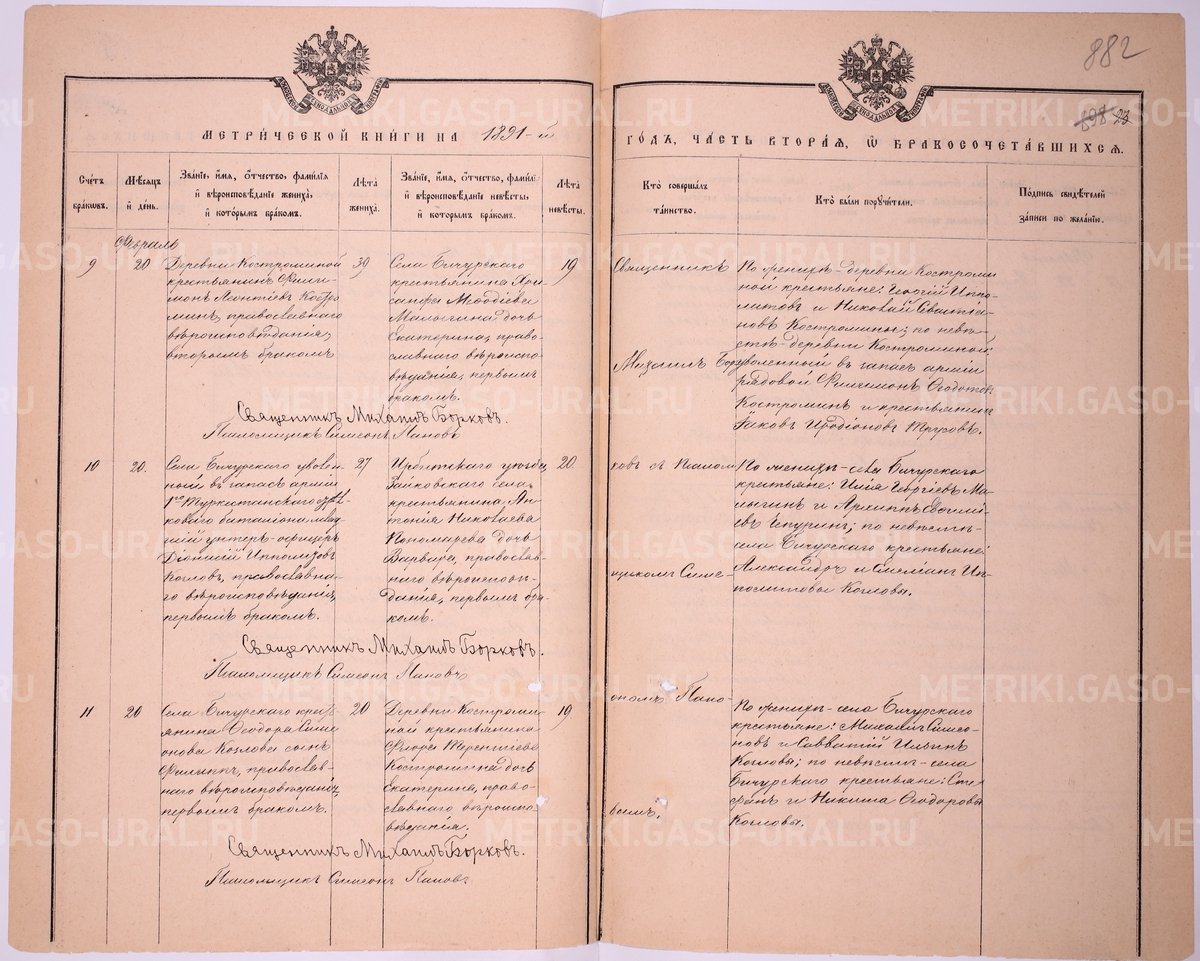 882
898 23
МЕТРИ́ЧЕСКОЙ КНИ́ГИ НА 1891-й
ГО́ДЪ, ЧА́СТЬ ВТОРА́Я, Ѡ БРАКОСОЧЕТА́ВШИХСЯ.
Сче́тъ бра́ковъ.
Мѣ́сяцъ и де́нь.
Зва́нїе, и́мя, о́тчество, фами́лїя и́ вѣроисповѣ́данїе жениха̀, и́ кото́рымъ бра́комъ.
Лѣ́та жениха̀.
Зва́нїе, и́мя, о́тчество, фами́лїя и́ вѣроисповѣ́данїе невѣ́сты, и́ кото́рымъ бра́комъ.
Лѣ́та невѣ́сты.
Кто̀ соверша́лъ та́инство.
Кто̀ бы́ли поручи́тели.
По́дпись свидѣ́телей за́писи по жела́нїю.
Февраль
9
20
Деревни Костроминой
крестьянинъ Фили-
монъ Леонтіевъ Костро
минъ, православнаго
вѣроисповѣданія,
вторымъ бракомъ
39
Села Бичурскаго
крестьянина Хри
санфа Меѳодіева
Малыгина дочь
Екатерина, право-
славнаго вѣроиспо-
вѣданія, первымъ
бракомъ.
19
Священникъ
Михаилъ Бор
По женихѣ - деревни Костроми
ной крестьяне: Георгій Иппо-
литовъ и Николай Севастья-
новъ Костромины; по невѣ-
стѣ - деревни Костроминой:
уволенный въ запасъ арміи
рядовой Филимонъ Ѳедотовъ
Костроминъ и крестьянинъ
Іаковъ Иродіоновъ Трусовъ.
Священникъ Михаилъ Борковъ.
Псаломщикъ Симеонъ Пановъ
10
20.
Села Бичурскаго уволен-
ный въ запасъ арміи
1го Туркестанскаго
баталіона млад
шій унтеръ-офицеръ
Діонисій Ипполитовъ
Козловъ, православна-
го вѣроисповѣданія,
первымъ бракомъ.
27
Ирбитскаго уѣзда
Зайковскаго села,
крестьянина Ан-
тонія Николаева
Пономарева дочь
Варвара, православ-
наго вѣроисповѣ-
данія, первымъ бра-
комъ.
20.
ковъ съ псалом
щикомъ Симе-
По женихѣ - села Бичурскаго
крестьяне: Илія Георгіевъ Ма-
лыгинъ и Архиппъ Василі-
евъ Чепуринъ; по невѣстѣ-
села Бичурскаго крестьяне:
Александръ и Ип-
политовы Козловы.
Священникъ Михаилъ Борковъ.
Псаломщикъ Симеонъ Пановъ
11
20
Села Бичурскаго кресть-
янина Ѳеодора Симе
онова Козлова сынъ
Филиппъ, православ-
наго вѣроисповѣданія,
первымъ бракомъ.
20
Деревни Костроми-
ной крестьянина
Флора Терентіева
Костромина дочь
Екатерина, право-
славнаго вѣроиспо-
вѣданія.
19
ономъ Пано-
вымъ.
По женихѣ - села Бичурскаго
крестьяне: Михаилъ Симео-
новъ и Савватій Ильинъ
Козловы; по невѣстѣ - села
Бичурскаго крестьяне: Сте-
фанъ и Никита Ѳеодоровы
Козловы.
Священникъ Михаилъ Борковъ.
Псаломщикъ Симеонъ Пановъ
METRIKI.GASO-URAL.RU